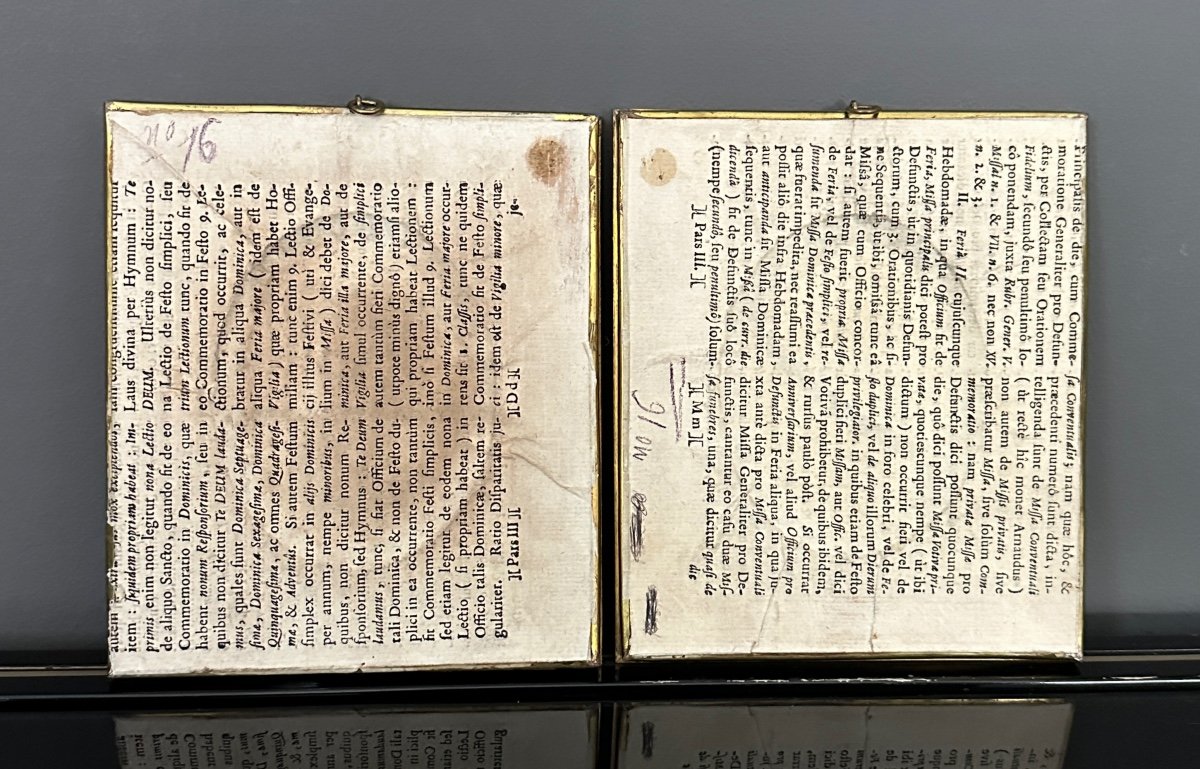 item: siquidem propriam habeat : Im-
primis enim non legitur nona Lectio
de aliquo Sancto, quando fit de eo
Commemoratio in Dominicis, quæ
habent nonum Responsorium, seu in
quibus non dicitur Te DEUM lauda-
mus, quales sunt Dominica Septuage-
sima, Dominica Sexagesima, Dominica
Quinquagesima, ac omnes Quadragesi-
mæ, & Adventûs. Si autem Festum
simplex occurrat in alijs Dominicis
per annum, nempe minoribus, in
quibus, non dicitur nonum Re-
sponsorium, sed Hymnus : Te Deum
laudamus; tunc, si fiat Officium de
tali Dominica, & non de Festo du-
plici in ea occurrente, non tantùm
fit Commemoratio Festi simplicis,
sed etiam legitur de eodem nona
Lectio ( si propriam habeat ) in
Officio talis Dominicæ, saltem re-
gulariter. Ratio Disparitatis ju-
][ Pars III ][
Laus divina per Hymnum : Te
DEUM. Ulterius non dicitur no-
na Lectio de Festo simplici, seu
trium Lectionum tunc, quando fit de
eo Commemoratio in Festo 9. Le-
ctionum, quod occurrit, ac cele-
bratur in aliqua Dominica, aut in
aliqua Feria majore ( idem est de
Vigilia ) quæ propriam habet Ho-
miliam : tunc enim 9. Lectio Offi-
cij illius Festivi ( uti & Evange-
lium in Missa ) dici debet de Do-
minica, aut Feria illa majore, aut de
Vigilia simul occurrente, de simplici
autem tantùm fieri Commemoratio
( utpote minùs dignô ) etiamsi alio-
qui propriam habeat Lectionem :
imò si Festum illud 9. Lectionum
in Dominica, aut Feria majore occur-
rens sit 1. Classis, tunc ne quidem
Commemoratio fit de Festo simpli-
ci : idem est de Vigilia minore, quæ
][ D d ][
je-
No 16
Principalis de die, cum Comme-
moratione Generaliter pro Defun-
ctis, per Collectam seu Orationem
Fidelium, secundô seu penultimô lo-
cô ponendam, juxta Rubr. Gener. V.
Missal n. 1. & VII. n. 6. nec non XI.
n. 2. & 3.
II. Feriâ II. cujuscunque
Hebdomadæ, in qua Officium fit de
Feria, Missa principalis dici potest pro
Defunctis, ùt in quotidianis Defun-
ctorum, cum 3. Orationibus, ac si-
ne Sequentia, ùt ibi, omissâ tunc eâ
Missâ, quæ cum Officio concor-
dat : si autem fuerit propria Missa
de Feria, vel de Festo simplici, vel re-
sumenda sit Missa Dominicæ præcedentis,
quæ fuerat impedita, nec reassumi ea
possit aliô die infra Hebdomadam,
aut anticipanda sit Missa Dominicæ
sequentis, tunc in Missâ ( de curr. die
dicendâ ) fit de Defunctis suô locô
(nempe secundô, seu penultimô) solum-
][ Pars III. ][
sa Conventuali; nam quæ hîc, &
præcedenti numerô sunt dicta, in-
telligenda sunt de Missa Conventuali
( ùt rectè hîc monet Arnaudus )
non autem de Missis privatis, sive
præscribatur Missa, sive solùm Com-
memoratio : nam privata Missa pro
Defunctis dici possunt quocunque
die, quô dici possunt Missæ votivæ pri-
vatæ, quotiescunque nempe ( ùt ibi
dictum ) non occurrit fieri vel de
Dominica in foro celebri, vel de Fe-
sto duplici, vel de aliquo illorum Dierum
privilegiator. in quibus etiam de Festo
duplici fieri Missam, aut Offic. vel dici
Votivâ prohibetur, de quibus ibidem,
& rursus paulò pòst. Si occurrat
Anniversarium, vel aliud Officium pro
Defunctis in Feria aliqua, in qua ju-
xta antè dicta pro Missa Conventuali
dicitur Missa Generaliter pro De-
functis, cantantur eo casu duæ Mis-
sæ funebres, una, quæ dicitur quasi de
][ M m ][
die
No 16